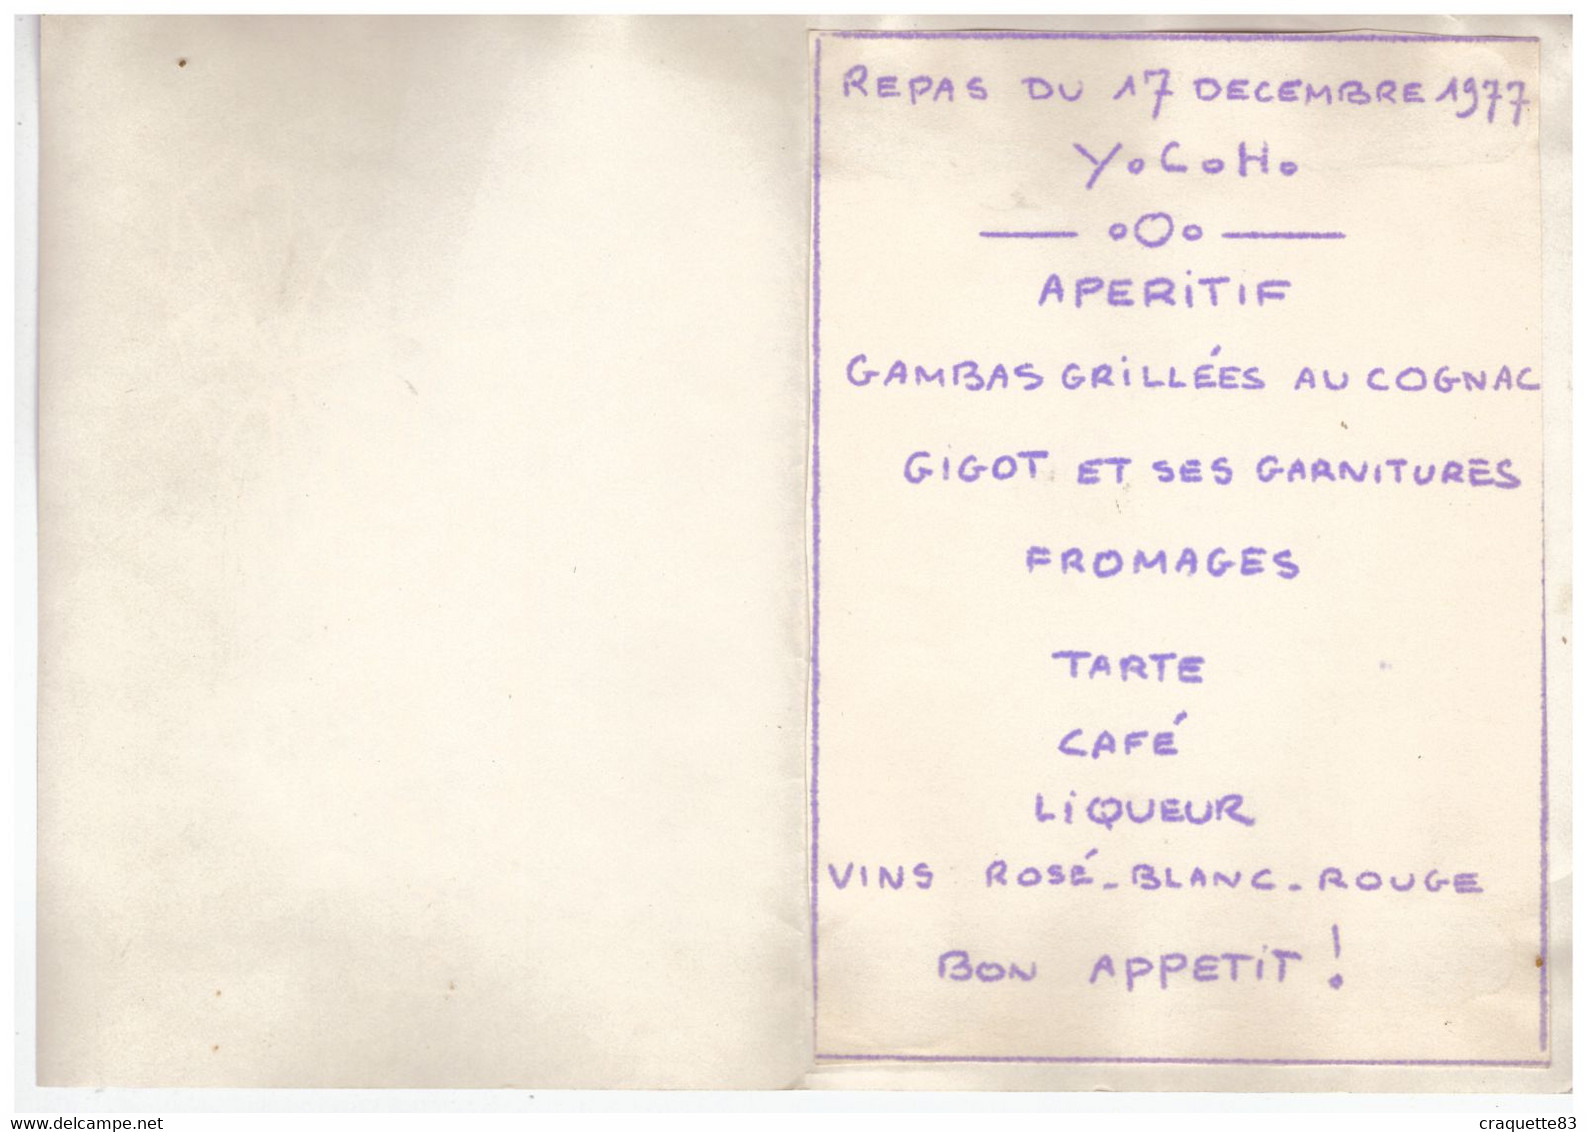 REPAS DU 17 DECEMBRE 1977
Y.C.H.
— oOo —
APERITIF
GAMBAS GRILLÉES AU COGNAC
GIGOT ET SES GARNITURES
FROMAGES
TARTE
CAFÉ
LIQUEUR
VINS ROSÉ - BLANC - ROUGE
BON APPETIT !
www.delcampe.net
craquette83